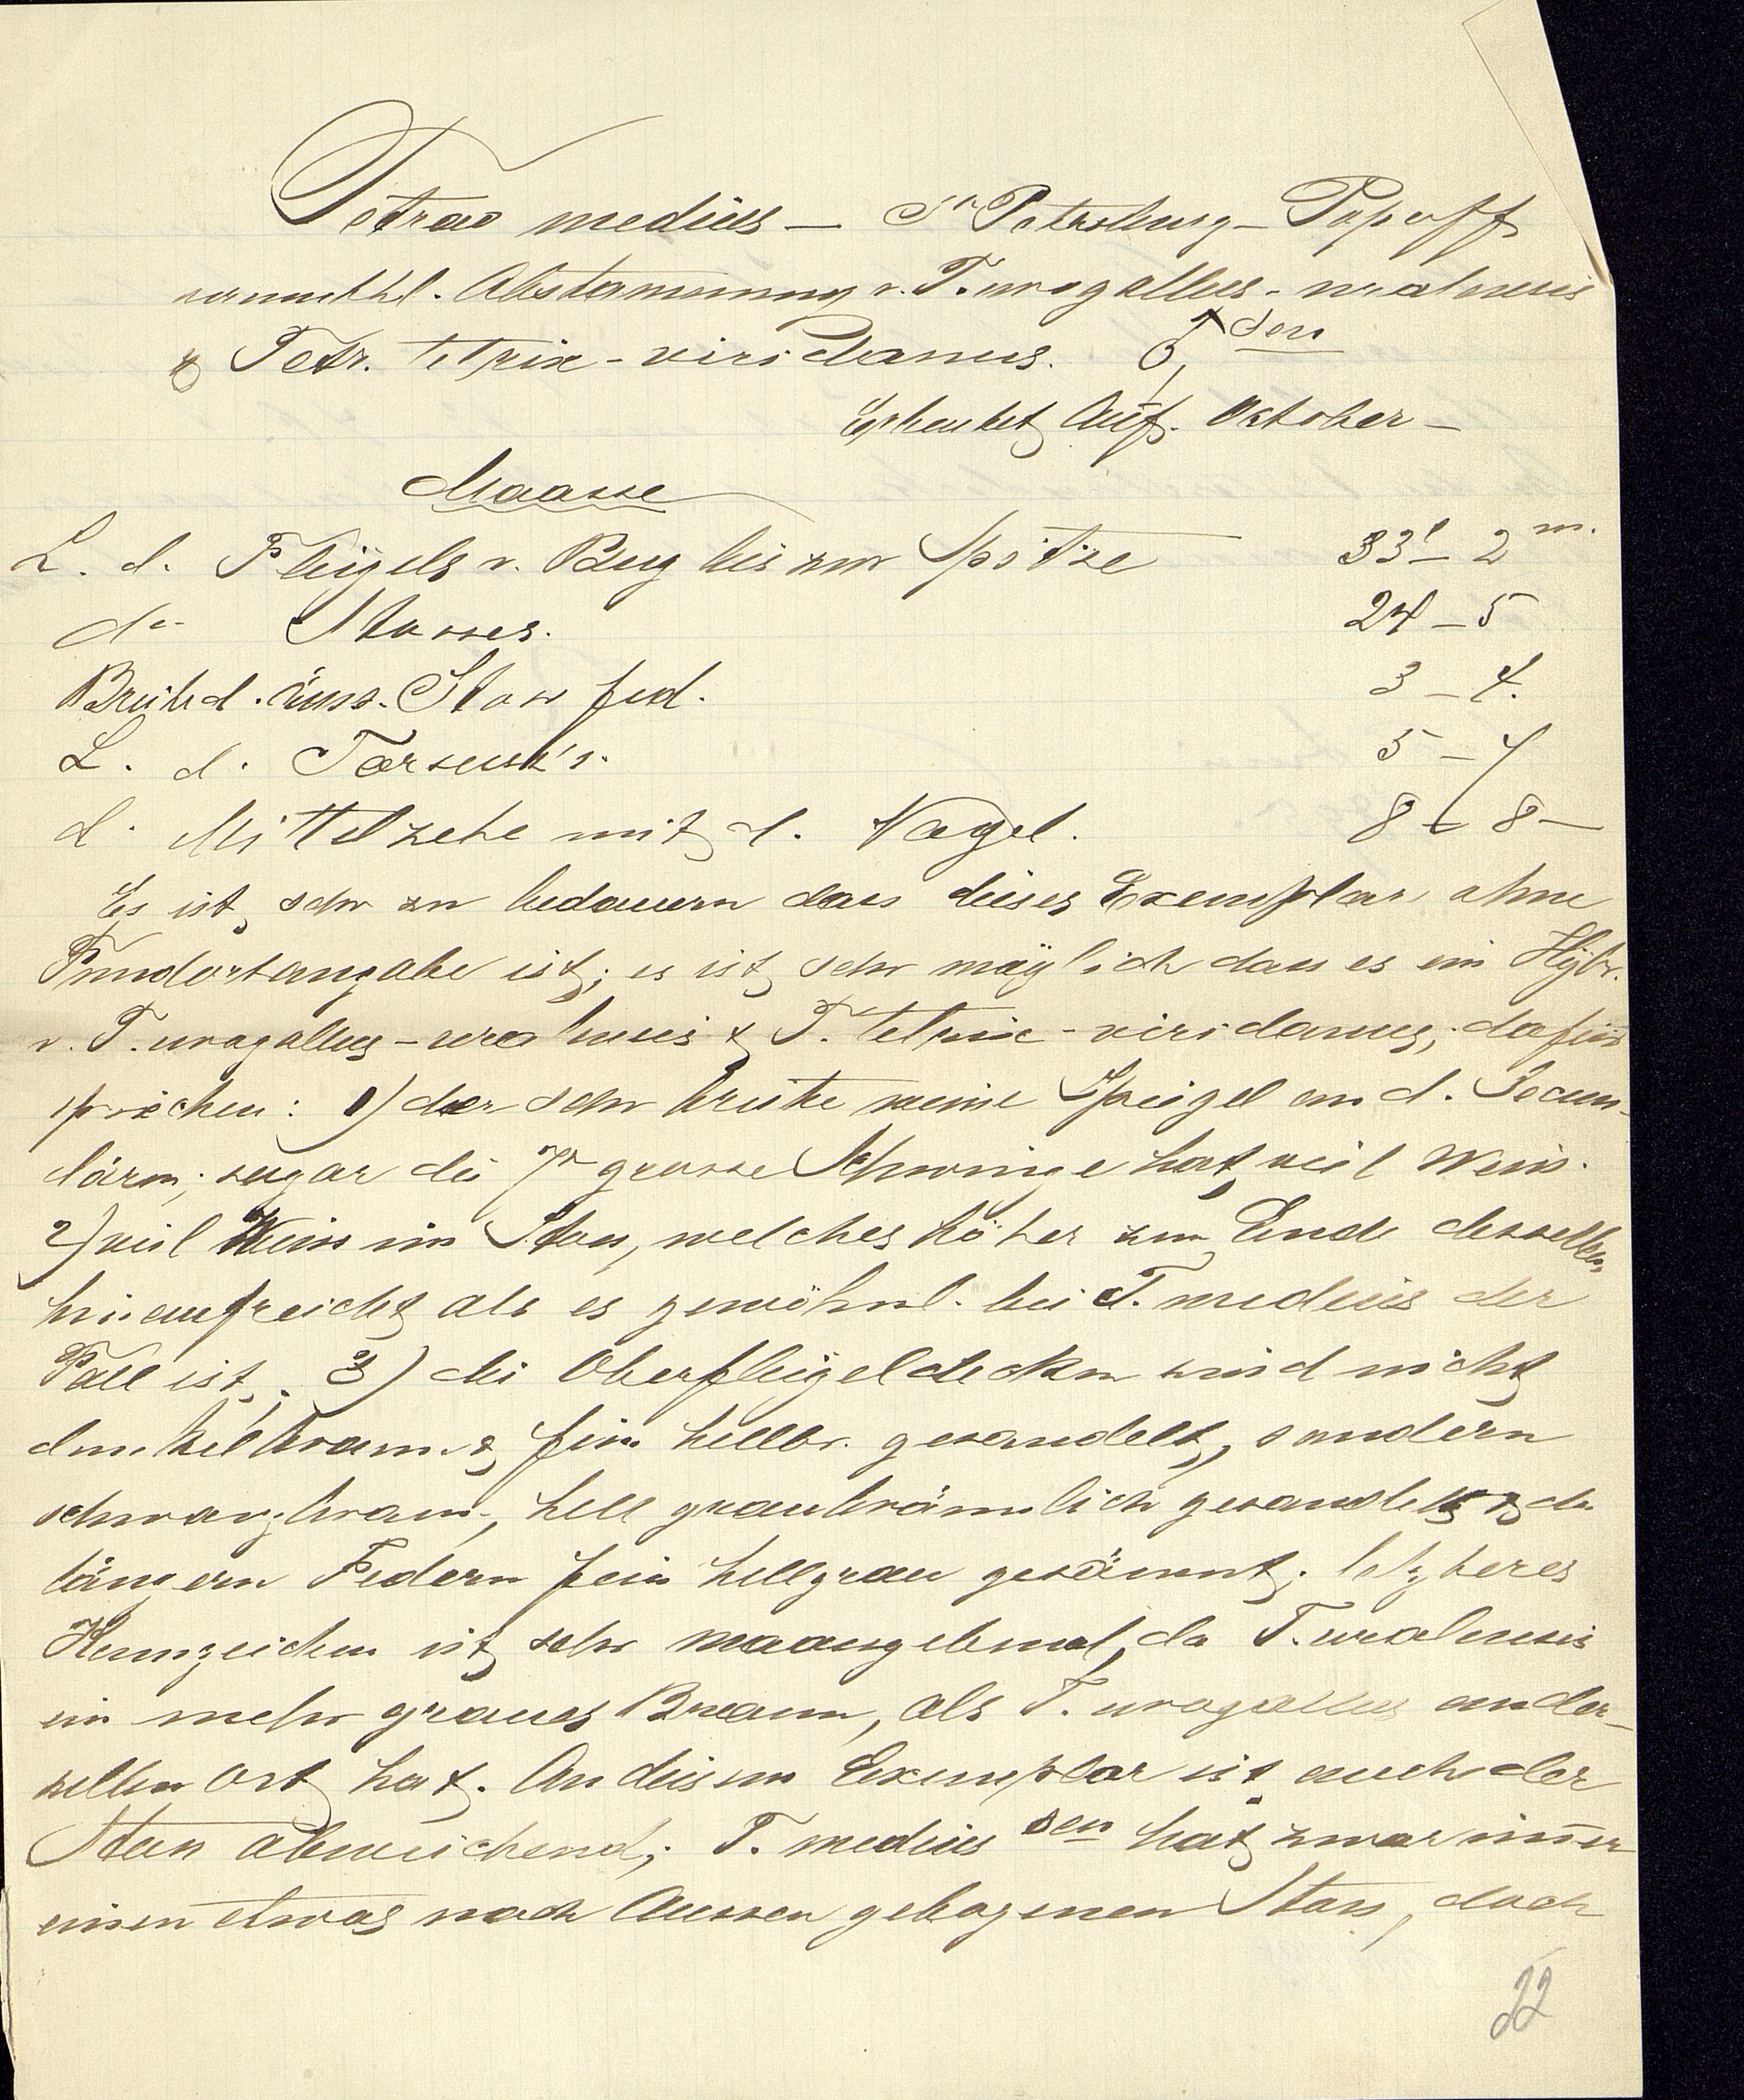 Tetrao medius — St Petersburg — Popoff
vermuthl. Abstammung v. T. urogallus - uralensis
& Tetr. tetrix - viridanus. ♂ sen
Erbeutet Anf. Oktober —
Maasse
L. d. Flügels v. Bug bis zur Spitze 33' — 2 m.
do Stosses. 24 — 5
Breite d. äuss. Stossfed. 3 — 4.
L. d. Tarsus's. 5 — 7
d. Mittelzehe mit d. Nagel. 8 — 8 —
Es ist sehr zu bedauern dass dieses Exemplar ohne
Fundortangabe ist; es ist sehr möglich dass es ein Hybr.
v. T. urogallus - uralensis & T. tetrix - viridanus; dafür
sprechen: 1) der sehr breite weisse Spiegel an d. Secun-
dären; sogar die 7te grosse Schwinge hat viel Weiss.
2) viel Weiss im Stoss, welches höher zum Ende desselben
hinaufreicht als es gewöhnl. bei T. medius der
Fall ist. 3) die Oberflügeldecken sind nicht
dunkelbraun & fein hellbr. gesandelt, sondern
schwarzbraun, hell graubräunlich gesandelt & die
längern Federn fein hellgrau gesäumt; letzteres
Kennzeichen ist sehr maasgebend, da T. uralensis
ein mehr graues Braun, als T. urogallus an der-
selben Ort hat. An diesem Exemplar ist auch der
Stoss abweichend; T. medius sen hat zwar im̄er
einen etwas nach Aussen gebogenen Stoss, doch
22